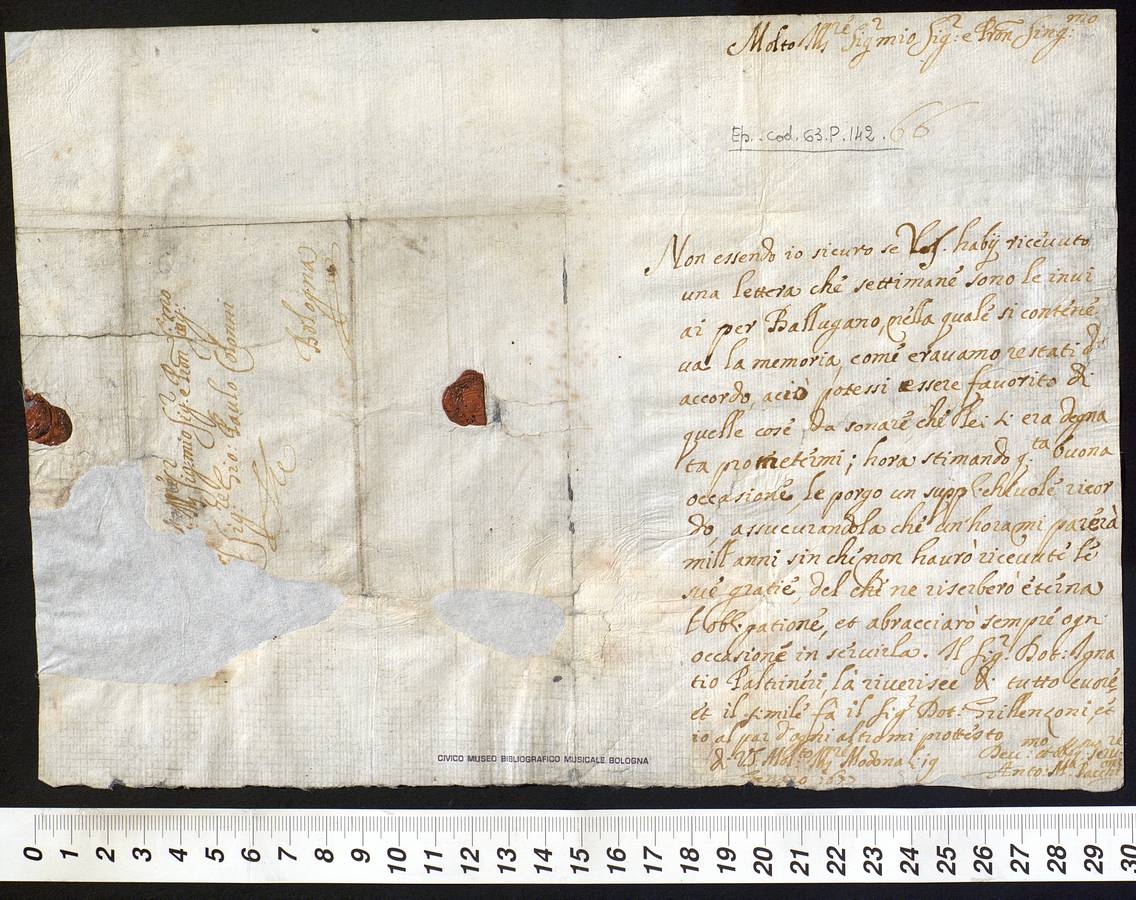 Molto Mre Sigr mio Sigr: e Pron Sing:mo
Ep. cod. 63. P. 142. 66
Non essendo io sicuro se V.S. habij ricevuto
una lettera che settimane sono le invi
ai per Ballugano, nella quale si contene
va la memoria, come eravamo restati d'
accordo, aciò potessi essere favorito di
quelle cose da sonare che lei si era degna
ta prometermi; hora stimando q.ta buona
occasione, le porgo un supplichevole ricor
do, assucurandola che un hora mi parerà
mill'anni sin che non haurò ricevute le
sue gratie, del che ne riserberò eterna
l'obligatione, et abracciarò sempre ogn
occasione in servirla. Il Sigr Dot: Igna
tio Paltrineri la riverisce di tutto cuore,
et il simile fa il Sigr Dot: Grillenzoni et
io al par d'ogni altro mi protesto
di VS Molto Mre Modona li 19
Anto: Ma Pacchi
Sigr mio Sigr e Pron Sing:
Sig
Gio. Paulo Colonni
Bologna
CIVICO MUSEO BIBLIOGRAFICO MUSICALE BOLOGNA
0 1 2 3 4 5 6 7 8 9 10 11 12 13 14 15 16 17 18 19 20 21 22 23 24 25 26 27 28 29 30